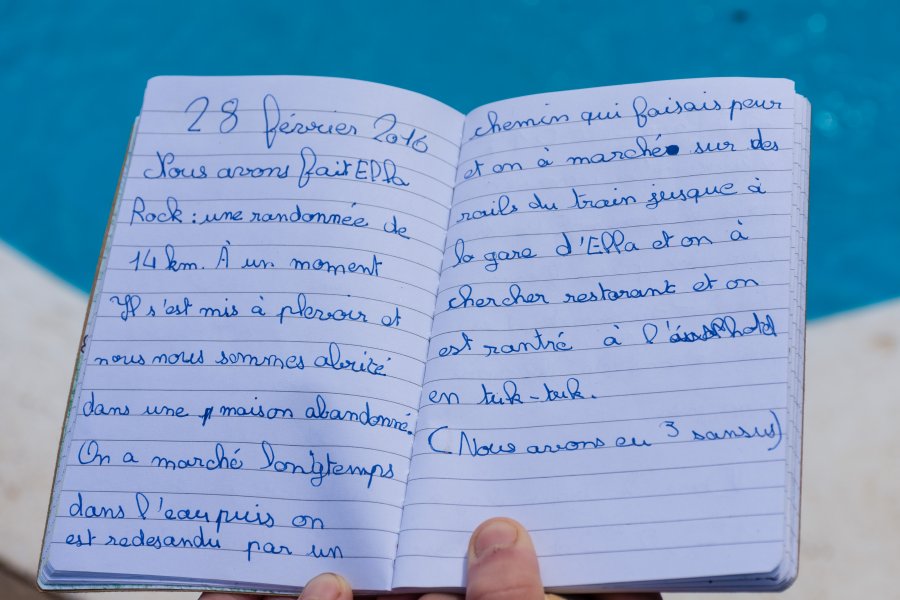 28 février 2016
Nous avons fait Ella
Rock : une randonnée de
14 km. À un moment
Il s'est mis à plevoir et
nous nous sommes abrité
dans une maison abandonné.
On a marché longtemps
dans l'eau puis on
est redesandu par un
chemin qui faisais peur
et on à marché sur des
rails du train jusque à
la gare d'Ella et on à
chercher restorant et on
est rantré à l'hotel
en tuk-tuk.
(Nous avons eu 3 sansus)